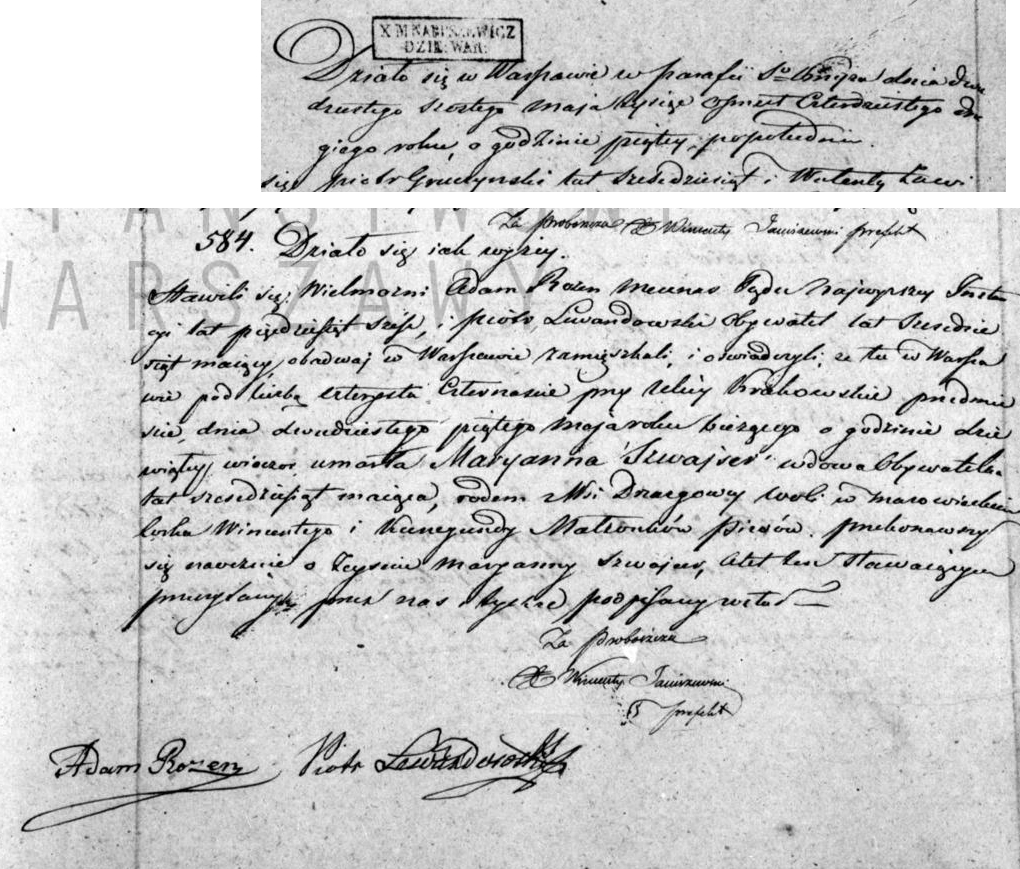 X M NARUSZEWICZ
DZIE: WAR:
Działo się w Warszawie w parafii dnia dwu
dziestego szostego maja tysiąc ośmset czterdziestego dru
giego roku, o godzinie piątey, popołudniu.
się Piotr lat sześćdziesiąt i Walenty
PAŃSTWOWE
WARSZAWY
Za Proboszcza X Wincenty Janiszewski prefekt
584. Działo się iak wyżey.
Stawili się Wielmożni Adam Rozen Mecenas Sądu Najwyższey Insta
cyi lat pięćdziesiąt sześć, i Piotr Lewandowski Obywatel lat sześćdzie
siąt maiący, obadwaj w Warszawie zamięszkali, i oświadczyli, że tu w Warsza
wie pod liczbą czterysta czternaście przy ulicy Krakowskie przedmie
ście, dnia dwudziestego piątego maja roku bieżącego o godzinie dzie
wiątey wieczor umarła Maryanna Szwajcer wdowa Obywatelka
lat sześćdziesiąt maiąca, rodem z Wsi Woli w Mazowieckim
Corka Wincentego i Kunegundy Małżonków. Przekonawszy
się naocznie o Zeyściu Maryanny Szwajcer, Akt ten Stawaiącym
przeczytany przez nas i tychże podpisany został
Za Proboszcza
X Wincenty Janiszewski
prefekt
Adam Rozen Piotr Lewandowski